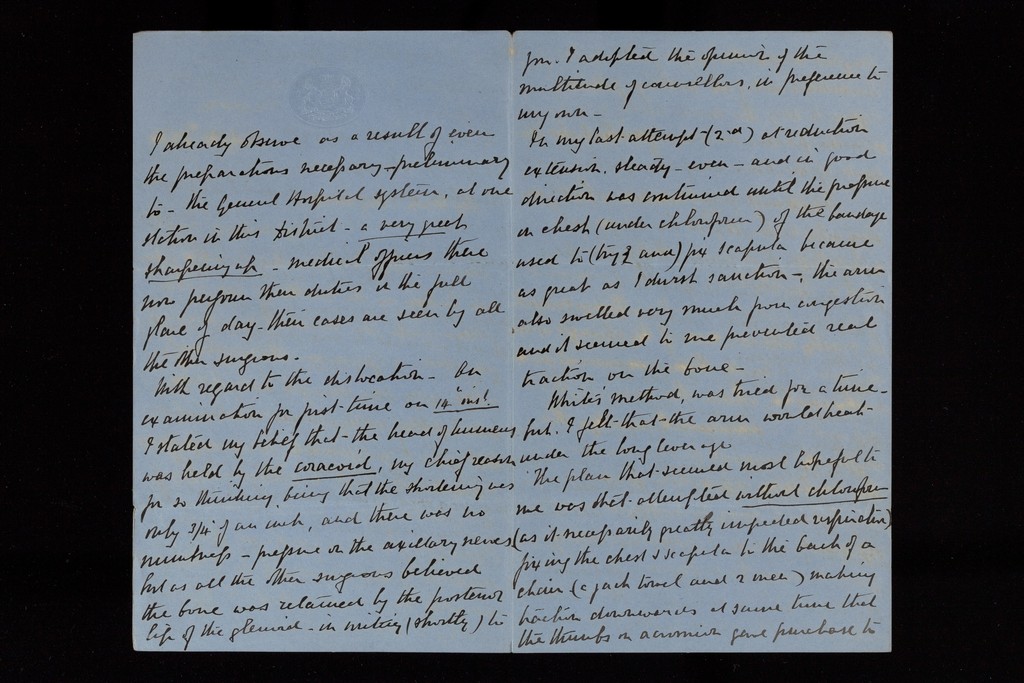 I already observe as a result of even
the preparations necessary preliminary
to - the General Hospital system, at one
station in this District - a very great
sharpening up - medical officers there
now perform their duties in the full
glare of day - their cases are seen by all
the other surgeons -
With regard to the dislocation - On
examination for first time on 14th inst.
I stated my belief that the head of humerus
was held by the coracoid, my chief reason
for so thinking being that the shortening was
only 3/4 of an inch, and there was no
numbness - pressure on the axillary nerves
but as all the other surgeons believed
the bone was retained by the posterior
lip of the glenoid - in writing (shortly) to
you. I adopted the opinion of the
multitude of counsellors, in preference to
my own -
In my last attempt (2nd) at reduction
extension, steady - even - and in good
direction was continued until the pressure
on chest (under chloroform) of the bandage
used to (try and) fix scapula became
as great as I durst sanction -, the arm
also swelled very much from congestion
and it seemed to me prevented real
traction on the bone -
White's method, was tried for a time -
but I felt that the arm would
under the long leverage
The plan that seemed most hopeful to
me was that attempted without chloroform
(as it necessarily greatly impeded respiration)
fixing the chest & scapula to the back of a
chair (a jack towel and 2 men) making
traction downwards at same time that
the thumbs on acromion gave purchase to